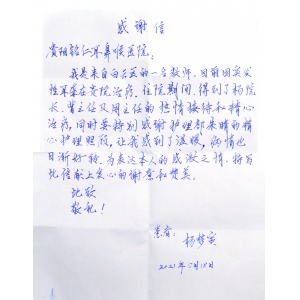 感谢信
贵阳铭仁耳鼻喉医院:
我是来自白云区的一名教师。目前因突发
性耳聋在贵院治疗。住院期间,得到了杨院
长、曾主任及周主任的热情接待和精心
治疗,同时要特别感谢护理部朵晴的精
心护理照顾,让我感到了温暖,病情也
日渐好转。为表达本人的感激之情,特写
此信献上衷心的谢意和赞美。
此致
敬礼!
患者:
杨梦寅
2021年